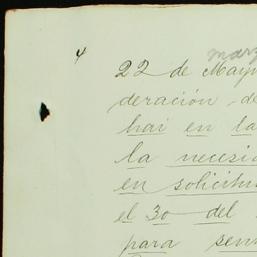 4
marz
22 de Mayo
deración de
hai en la
la necesid
en solicitu
el 30 del
para sen